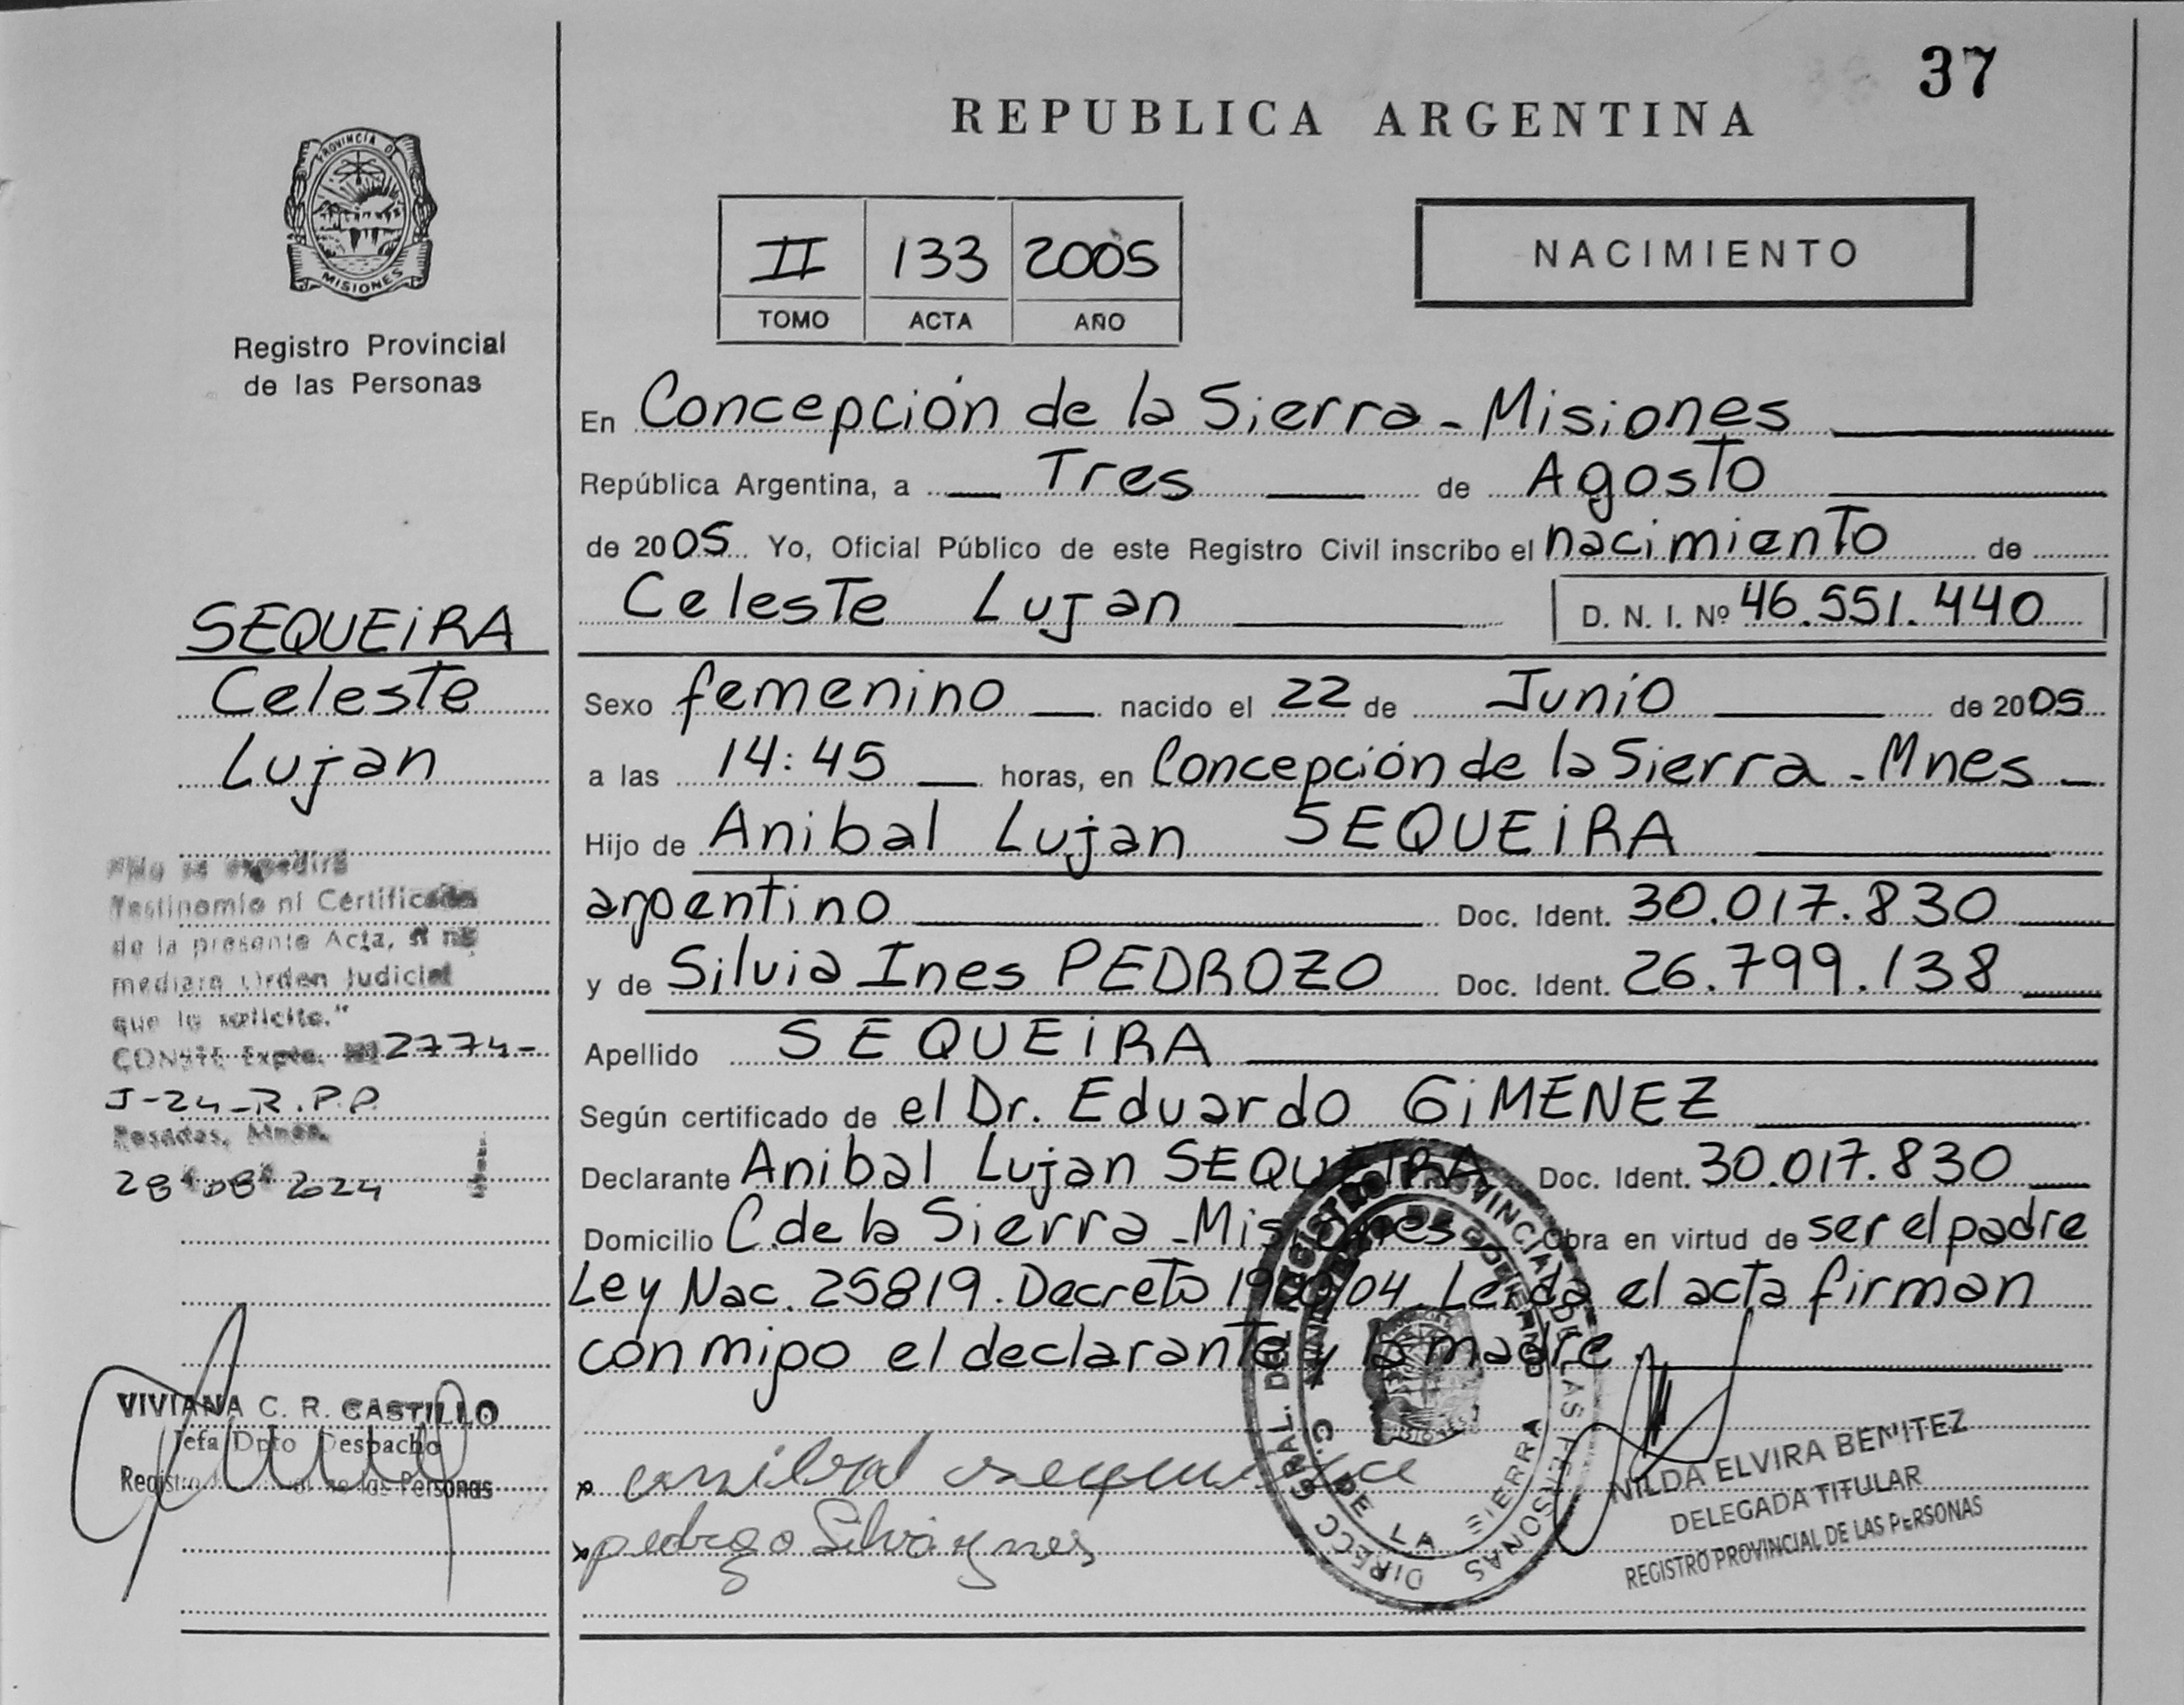 37
REPUBLICA ARGENTINA
PROVINCIA DE
MISIONES
Registro Provincial
de las Personas
II 133 2005
TOMO ACTA AÑO
NACIMIENTO
En Concepción de la Sierra - Misiones
República Argentina, a Tres de Agosto
de 2005 Yo, Oficial Público de este Registro Civil inscribo el nacimiento de
Celeste Lujan D. N. I. Nº 46.551.440
Sexo femenino nacido el 22 de Junio de 2005
a las 14:45 horas, en Concepción de la Sierra - Mnes
Hijo de Anibal Lujan SEQUEIRA
argentino Doc. Ident. 30.017.830
y de Silvia Ines PEDROZO Doc. Ident. 26.799.138
Apellido SEQUEIRA
Según certificado de el Dr. Eduardo GIMENEZ
Declarante Anibal Lujan SEQUEIRA Doc. Ident. 30.017.830
Domicilio C. de la Sierra - Misiones Obra en virtud de ser el padre
Ley Nac. 25819. Decreto Leida el acta firman
conmigo el declarante y la madre.
SEQUEIRA
Celeste
Lujan
"No se expedirá
Testinomio ni Certificado
de la presente Acta, si no
mediare Orden Judicial
que lo solicite."
CONSTE Expte. 2774-
J-24-R.P.P.
Posadas, Mnes.
28 08 2024
VIVIANA C. R. CASTILLO
Jefa Dpto Despacho
Registro de las Personas
anibal sequeira
pedrozo Silvia ynes
DIRECC. GRAL. DEL REGISTRO PROVINCIAL DE LAS PERSONAS
C. DE LA SIERRA
NILDA ELVIRA BENITEZ
DELEGADA TITULAR
REGISTRO PROVINCIAL DE LAS PERSONAS